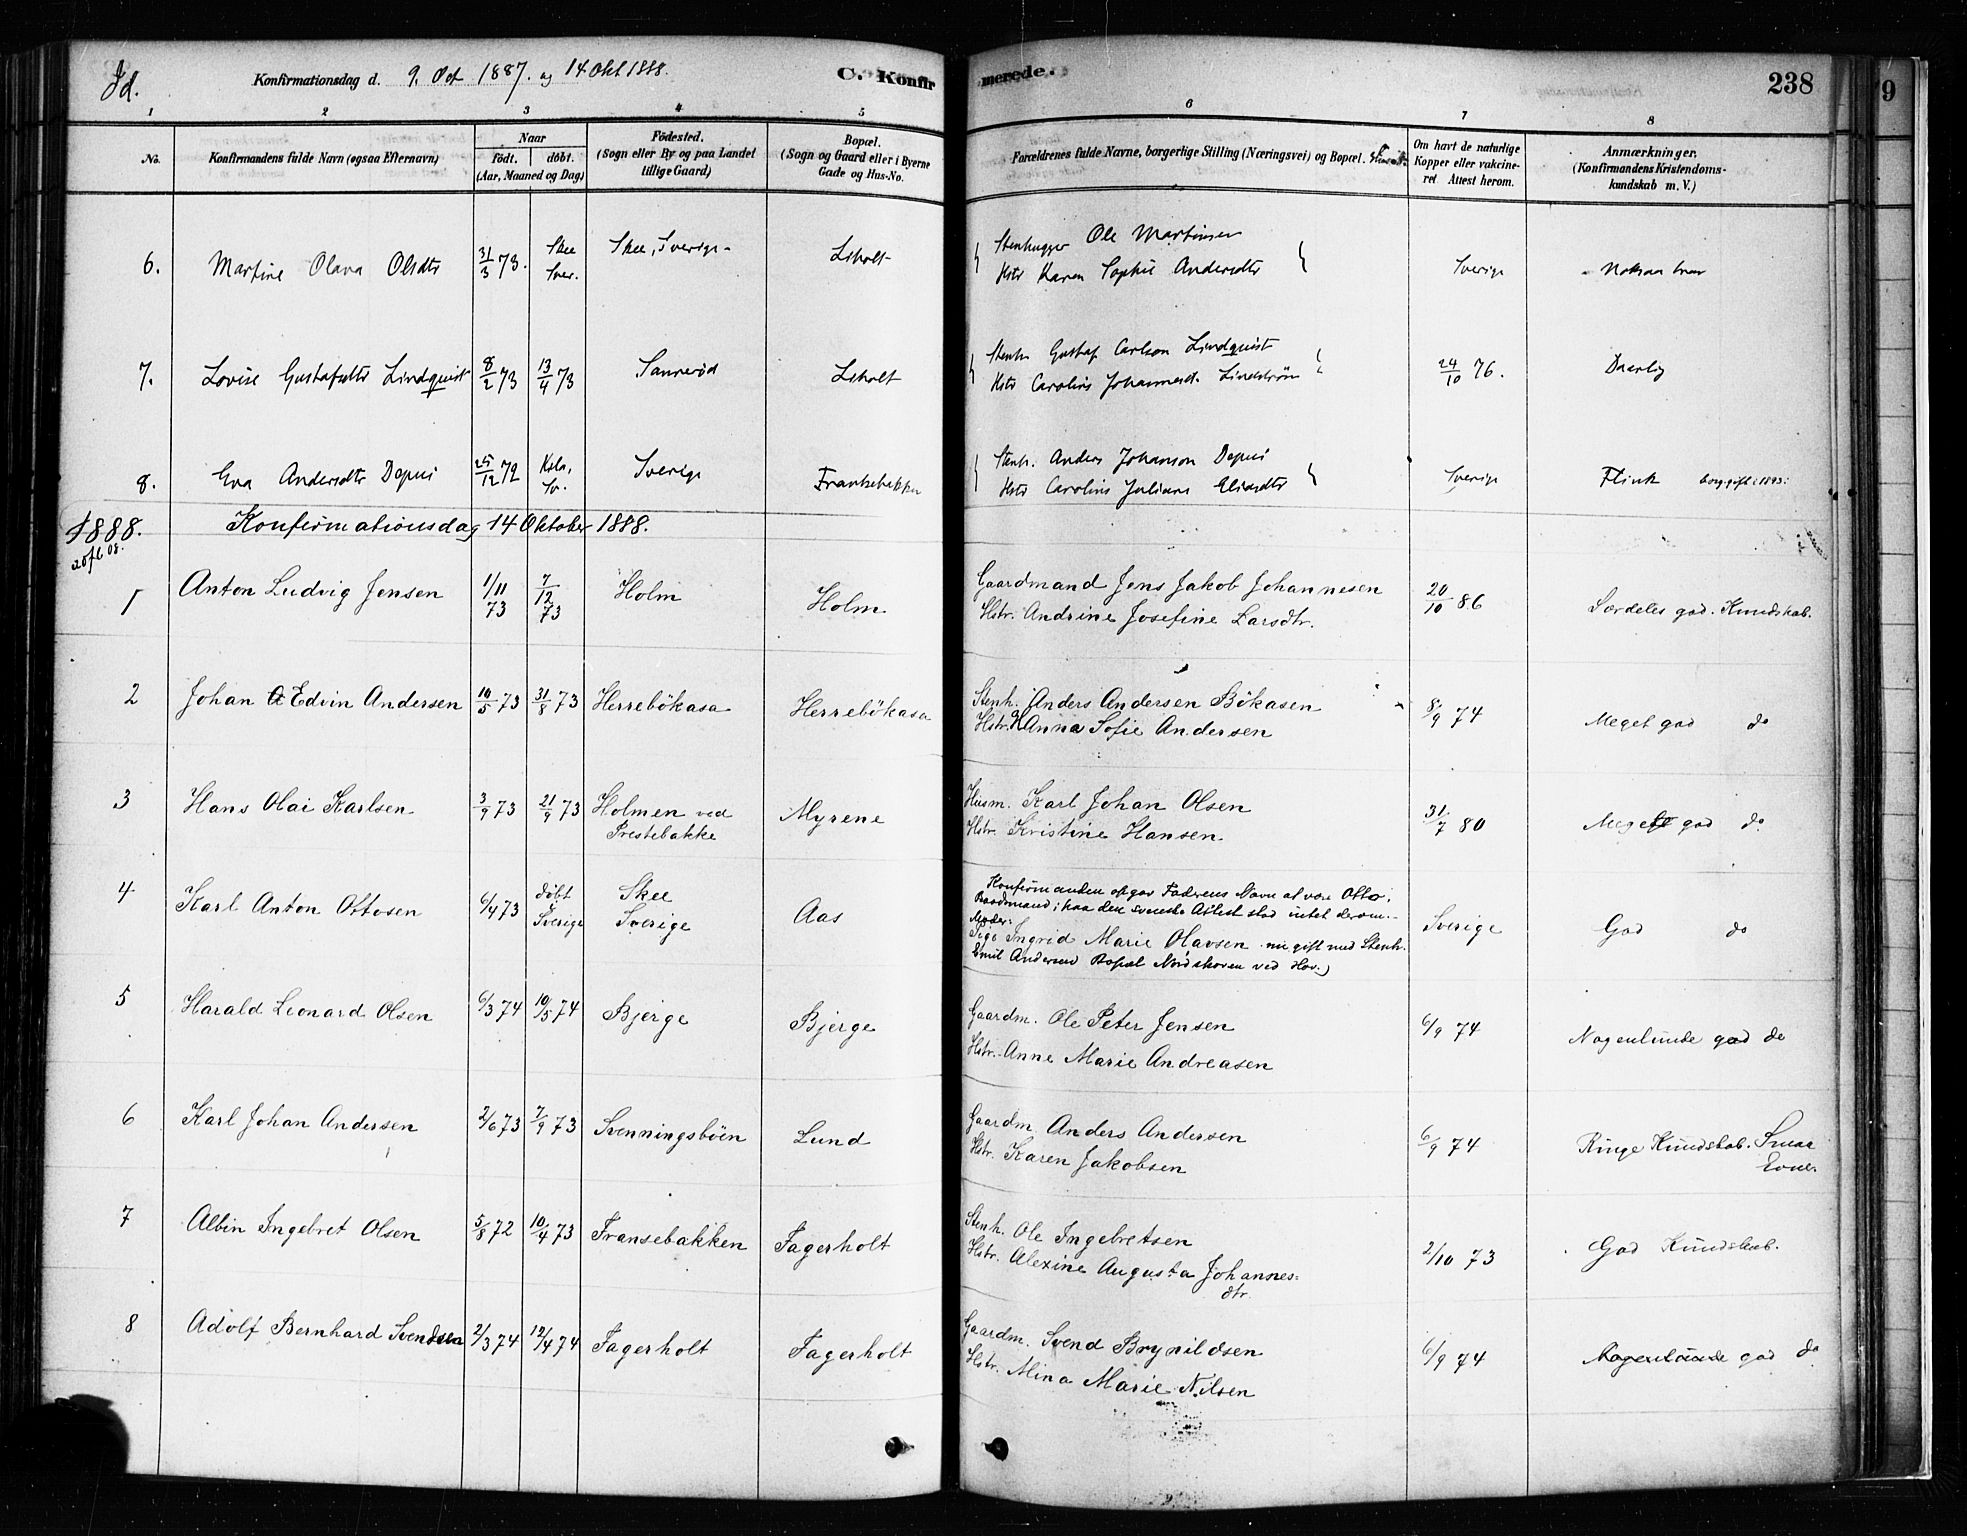 Id.
Konfirmationsdag d. 9. Oct 1887. og 14 Okt 1888.
C. Konfirmerede.
238
9
1 2 3 4 5 6 7 8
No.
Konfirmandens fulde Navn (ogsaa Efternavn)
Naar
födt. döbt.
(Aar, Maaned og Dag)
Födested.
(Sogn eller By og paa Landet
tillige Gaard)
Bopæl.
(Sogn og Gaard eller i Byerne
Gade og Hus-No.
Forældrenes fulde Navne, borgerlige Stilling (Næringsvei) og Bopæl.
Om havt de naturlige
Kopper eller vakcine-
ret Attest herom.
Anmærkninger.
(Konfirmandens Kristendoms-
kundskab m. V.)
6. Martine Olava Olsdtr 31/3 73. Skee Sver. Skee, Sverige Liholt
Stenhugger Ole Martinsen
Hstr Karen Sophie Andersdtr
Sverige Noksaa brav
7. Lovise Gustafsdtr Lindquist 8/2 73 13/4 73 Sannerød Liholt
Stenh. Gustaf Carlson Lindquist
Hstr Caroline Johannesd. Lindstrøm
24/10 76. Daarlig
8. Eva Andersdtr Depui 25/12 72 Sv. Sverige Fransebakken
Stenh. Anders Johanson Depui
Hstr Caroline Juliane Eliasdtr
Sverige Flink
1888. Konfirmationsdag 14 Oktober 1888.
1 Anton Ludvig Jensen 1/11 73 7/12 73 Holm Holm
Gaardmand Jens Jakob Johannesen
Hstr. Andrine Josefine Larsdtr.
20/10 86 Særdeles god. Kundskab.
2 Johan Edvin Andersen 10/5 73 31/8 73 Herrebökasa Herrebökasa
Stenh. Anders Andersen Bökasen
Hstr. Anna Sofie Andersen
8/9 74 Meget god do
3 Hans Olai Karlsen 3/9 73 21/9 73 Holmen ved Prestebakke Myrene
Husm. Karl Johan Olsen
Hstr. Kristine Hansen
31/7 80 Meget god do
4 Karl Anton Ottosen 6/4 73 döbt Sverige Skee Sverige Aas
Konfirmanden opgav Faderens Navn at være Otto,
i den svenske Attest stod intet derom.
Moder:
Pige Ingrid Marie Olavsen nu gift med Stenh.
Emil Andersen Bopæl Nordskoven ved Hov.)
Sverige God do
5 Harald Leonard Olsen 6/3 74 10/5 74 Bjerge Bjerge
Gaardm. Ole Peter Jensen
Hstr. Anne Marie Andreasen
6/9 74 Nogenlunde god do
6 Karl Johan Andersen 2/6 73 7/9 73 Svenningsböen Lund
Gaardm Anders Andersen
Hstr. Karen Jakobsen
6/9 74 Ringe Kundskab. Smaa
Evner
7 Albin Ingebret Olsen 5/8 72 10/4 73 Fransebakken Fagerholt
Stenh. Ole Ingebretsen
Hstr. Alexine Augusta Johannes=
dtr.
2/10 73 God Kundskab.
8 Adolf Bernhard Svendsen 2/3 74 12/4 74 Fagerholt Fagerholt
Gaardm. Svend Brynildsen
Hstr. Mina Marie Nilsen
6/9 74 Nogenlunde god do